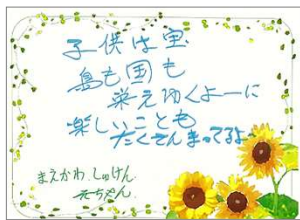 子供は宝
島も国も
栄えゆくよーに
楽しいことも
たくさんまってるよ
まえかわ しゅけん
元ちゃん